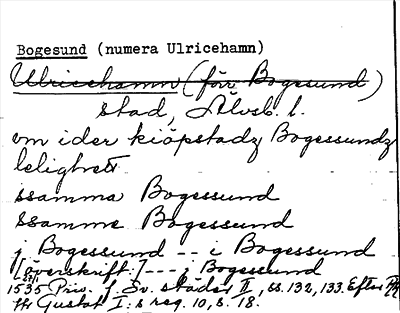 Bogesund (numera Ulricehamn)
Ulricehamn (förr Bogesund)
stad, Älvsb. l.
om ider kiöpstadz Bogessundz
lelighett
ssamma Bogessund
ssamme Bogessund
j Bogessund -- i Bogessund
[överskrift:] --- j Bogessund
1535 Priv. f Sv. städer II, ss. 132, 133. Efter
Gustaf I:s reg. 10, s. 18.